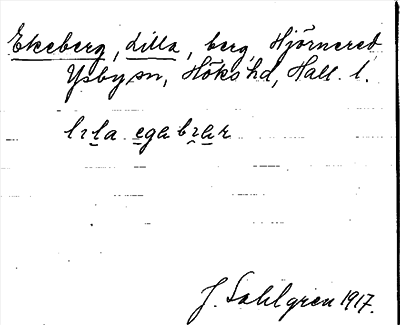 Ekeberg, Lilla, berg, Hjörnered
Ysby sn, Höks hd, Hall. l.
J. Sahlgren 1917.